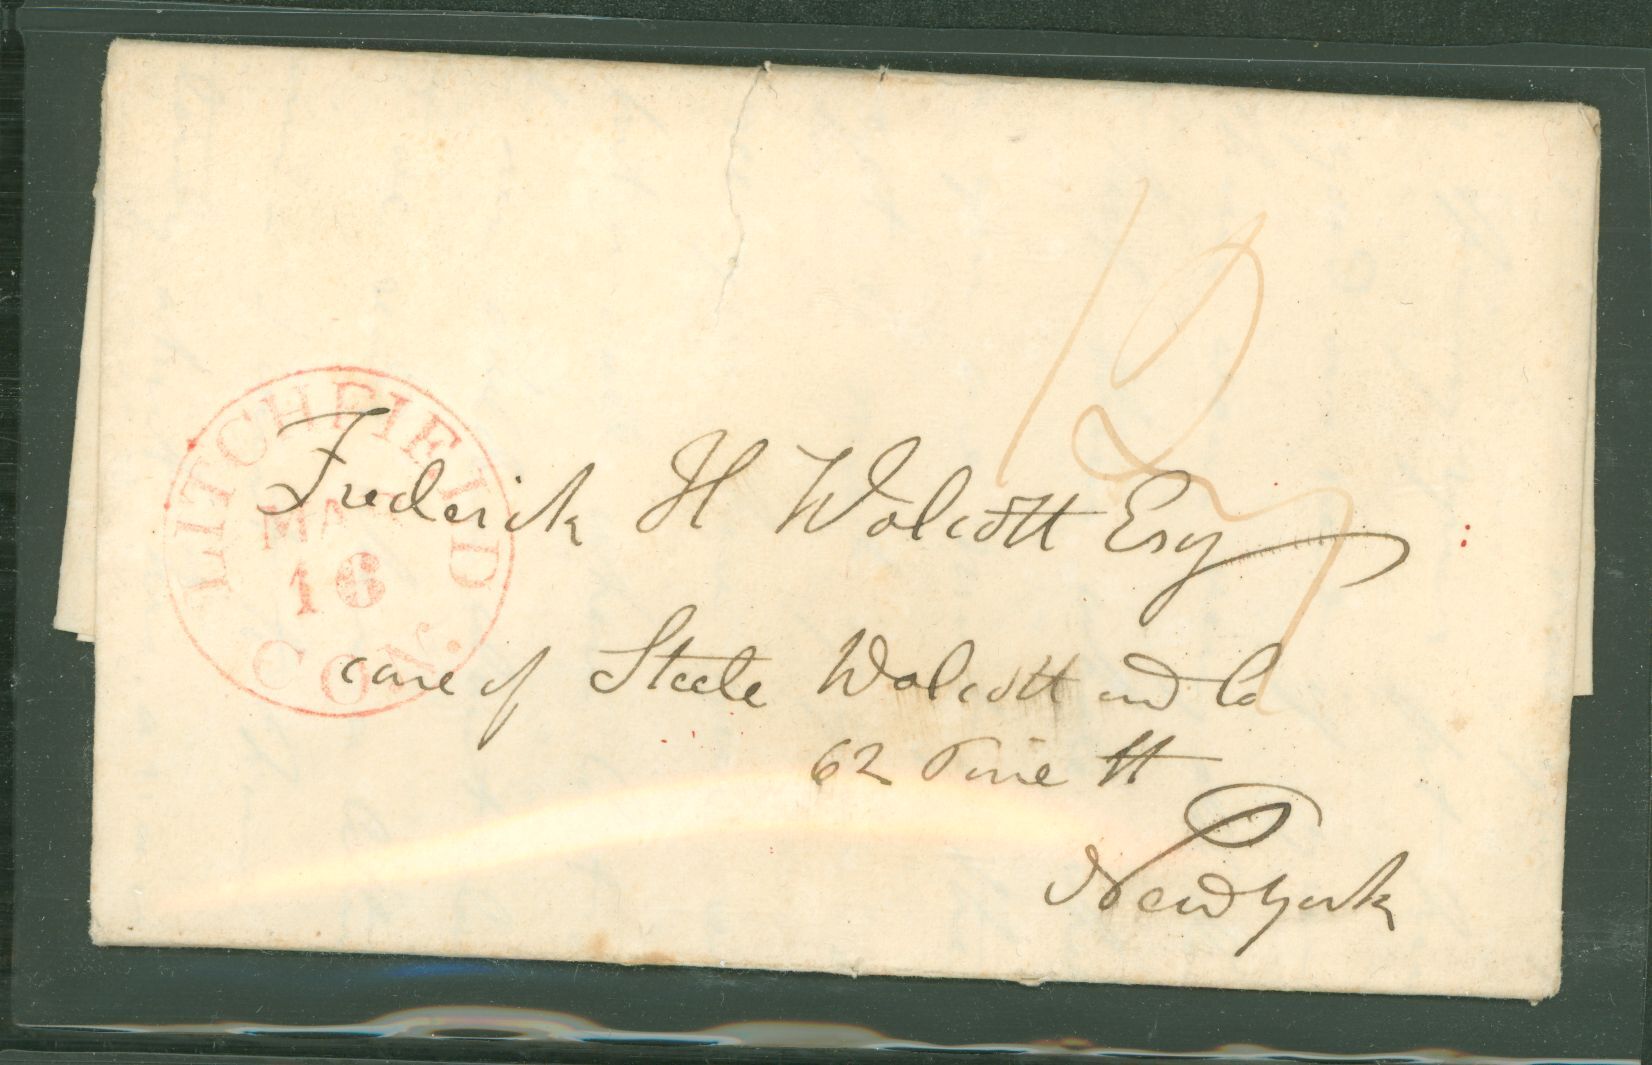 12
LITCHFIELD
MAY
16
CON.
Frederick H Wolcott Esq
care of Steele Wolcott and Co
62 Pine St
New York